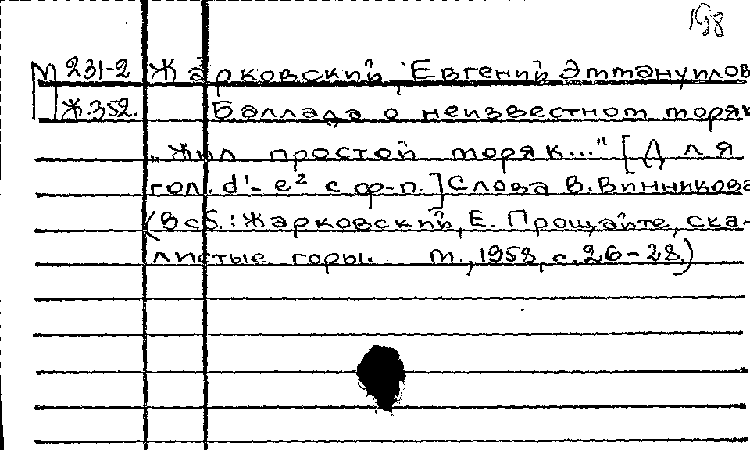 198
М 231-2 Жарковский, Евгений Эммануилов
Ж.352. Баллада о неизвестном моряк
„Жил простой моряк..." [Для
гол. d'- e² с ф-п.] Слова В. Винникова
(В сб.: Жарковский, Е. Прощайте, ска-
листые горы. М., 1958, с. 26-28.)